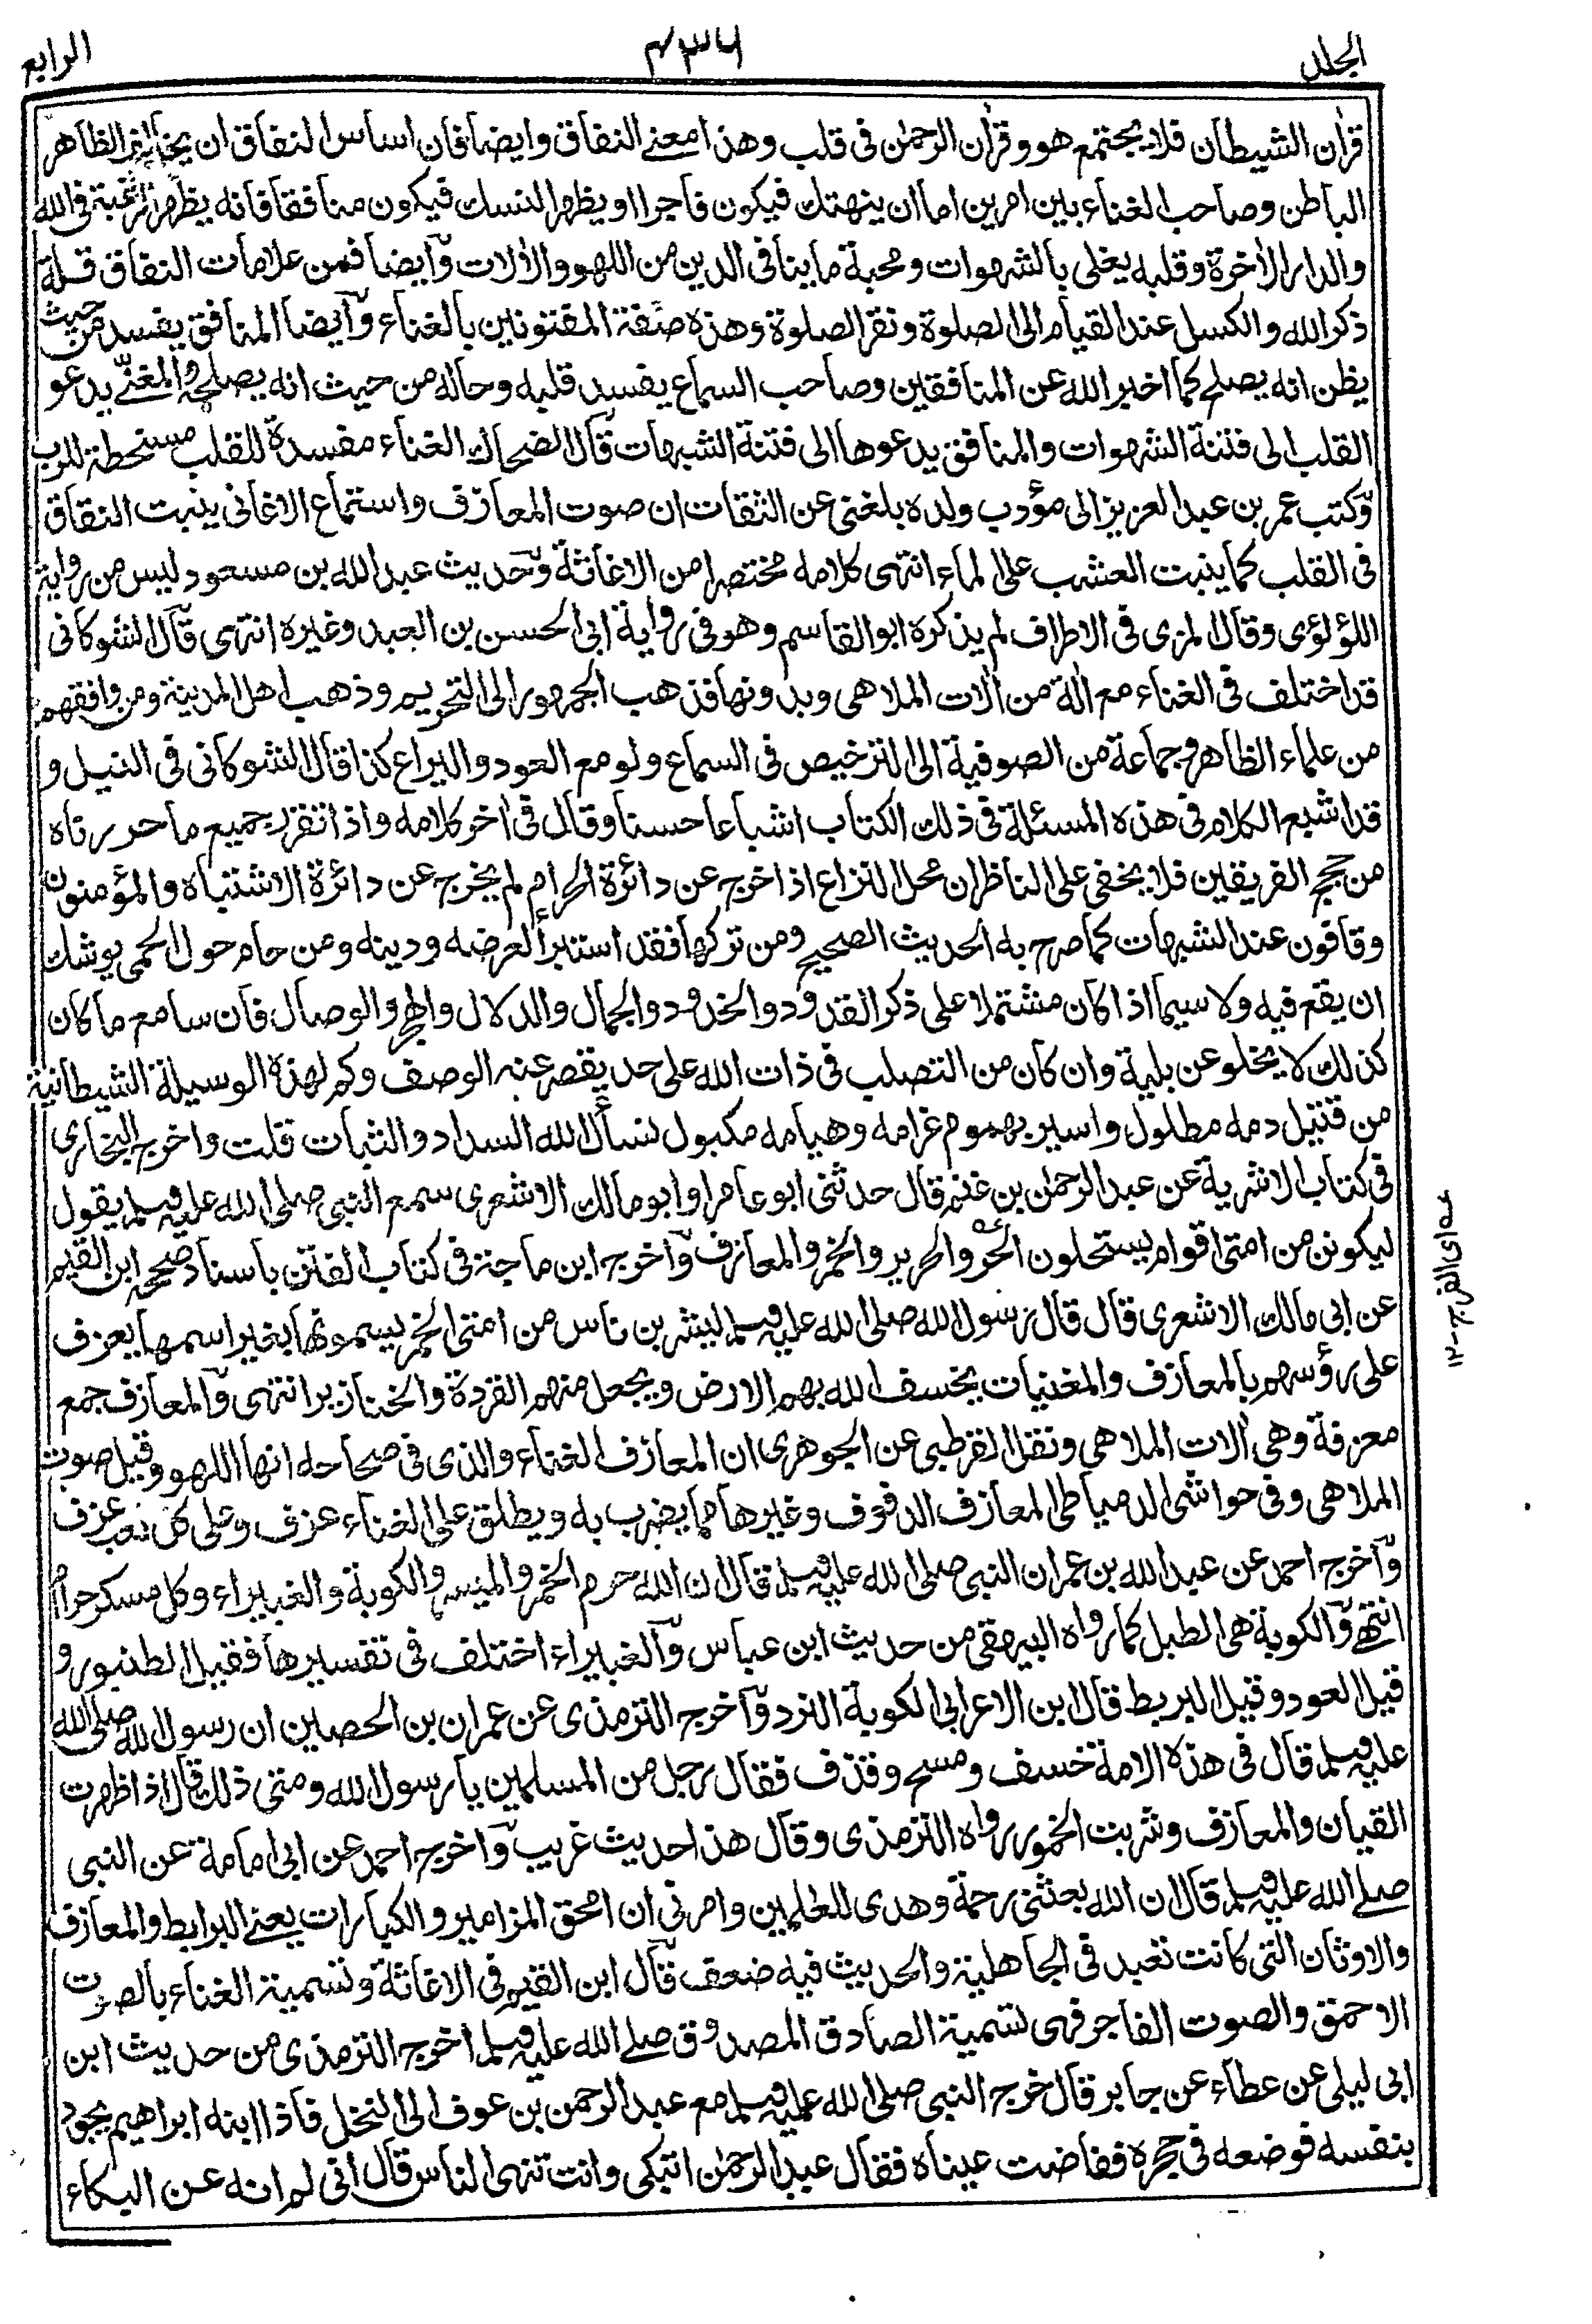 الجلد
٤٣٦
الرابع
قرآن الشيطان فلا يجتمع هو وقرآن الرحمٰن فى قلب وهذا معنے النفاق وايضا فان اساس النفاق ان يخالف الظاهر
الباطن وصاحب الغناء بين امرين اما ان ينهتك فيكون فاجرا او يظهر النسك فيكون منافقا فانه يظهر الرغبة فى الله
والدار الاٰخرة وقلبه يغلى بالشهوات ومحبة ما ينافى الدين من اللهو والاٰلات وايضا فمن علامات النفاق قلة
ذكر الله والكسل عند القيام الى الصلوة ونقر الصلوة وهذه صفة المفتونين بالغناء وايضا المنافق يفسد من حيث
يظن انه يصلح كما اخبر الله عن المنافقين وصاحب السماع يفسد قلبه وحاله من حيث انه يصلحه والمغنّے يدعو
القلب الى فتنة الشهوات والمنافق يدعوها الى فتنة الشبهات قال الضحاك الغناء مفسدة للقلب مسخطة للرب
وكتب عمر بن عبد العزيز الى مؤدب ولده بلغنى عن الثقات ان صوت المعازف واستماع الاغانى ينبت النفاق
فى القلب كما ينبت العشب على الماء انتهى كلامه مختصرا من الاغاثة وحديث عبد الله بن مسعود ليس من رواية
اللؤلؤى وقال المزى فى الاطراف لم يذكره ابو القاسم وهو فى رواية ابى الحسن بن العبد وغيره انتهى قال الشوكانى
قد اختلف فى الغناء مع اٰلة من اٰلات الملاهى وبدونها فذهب الجمهور الى التحريم وذهب اهل المدينة ومن وافقهم
من علماء الظاهر وجماعة من الصوفية الى الترخيص فى السماع ولو مع العود واليراع كذا قال الشوكانى فى النيل و
قد اشبع الكلام فى هذه المسئلة فى ذلك الكتاب اشباعا حسنا وقال فى اٰخر كلامه واذا تقرر جميع ما حررناه
من حجج الفريقين فلا يخفى على الناظر ان محل النزاع اذا خرج عن دائرة الحرام لم يخرج عن دائرة الاشتباه والمؤمنون
وقافون عند الشبهات كما صرح به الحديث الصحيح ومن تركها فقد استبرأ لعرضه ودينه ومن حام حول الحمى يوشك
ان يقع فيه ولا سيما اذا كان مشتملا على ذكر القدود والخدود والجمال والدلال والهجر والوصال فان سامع ما كان
كذلك لا يخلو عن بلية وان كان من التصلب فى ذات الله على حد يقصر عنه الوصف وكم لهذه الوسيلة الشيطانية
من قتيل دمه مطلول واسير بهموم غرامه وهيامه مكبول نسأل الله السداد والثبات قلت واخرج البخارى
فى كتاب الاشربة عن عبد الرحمٰن بن غنم قال حدثنى ابو عامر او ابو مالك الاشعرى سمع النبى صلى الله عليه وسلم يقول
ليكونن من امتى اقوام يستحلون الحر والحرير والخمر والمعازف واخرج ابن ماجة فى كتاب الفتن باسناد صححه ابن القيم
عن ابى مالك الاشعرى قال قال رسول الله صلى الله عليه وسلم ليشربن ناس من امتى الخمر يسمونها بغير اسمها يعزف
على رؤسهم بالمعازف والمغنيات يخسف الله بهم الارض ويجعل منهم القردة والخنازير انتهى والمعازف جمع
معزفة وهى اٰلات الملاهى ونقل القرطبى عن الجوهرى ان المعازف الغناء والذى فى صحاحه انها اللهو وقيل صوت
الملاهى وفى حواشى الدمياطى المعازف الدفوف وغيرها مما يضرب به ويطلق على الغناء عزف وعلى كل لعب عزف
واخرج احمد عن عبد الله بن عمر ان النبى صلى الله عليه وسلم قال ان الله حرم الخمر والميسر والكوبة والغبيراء وكل مسكر حرام
انتهے والكوبة هى الطبل كما رواه البيهقى من حديث ابن عباس والغبيراء اختلف فى تفسيرها فقيل الطنبور و
قيل العود وقيل البربط قال ابن الاعرابى الكوبة النرد واخرج الترمذى عن عمران بن الحصين ان رسول الله صلى الله
عليه وسلم قال فى هذه الامة خسف ومسخ وقذف فقال رجل من المسلمين يا رسول الله ومتى ذلك قال اذا ظهرت
القيان والمعازف وشربت الخمور رواه الترمذى وقال هذا حديث غريب واخرج احمد عن ابى امامة عن النبى
صلے الله عليه وسلم قال ان الله بعثنى رحمة وهدى للعٰلمين وامرنى ان امحق المزامير والكبارات يعنے البرابط والمعازف
والاوثان التى كانت تعبد فى الجاهلية والحديث فيه ضعف قال ابن القيم فى الاغاثة وتسمية الغناء بالصوت
الاحمق والصوت الفاجر فهى تسمية الصادق المصدوق صلے الله عليه وسلم اخرج الترمذى من حديث ابن
ابى ليلى عن عطاء عن جابر قال خرج النبى صلى الله عليه وسلم مع عبد الرحمن بن عوف الى النخل فاذا ابنه ابراهيم يجود
بنفسه فوضعه فى حجره ففاضت عيناه فقال عبد الرحمٰن اتبكى وانت تنهى الناس قال انى لم انه عن البكاء
عه اى الفرج ١٢